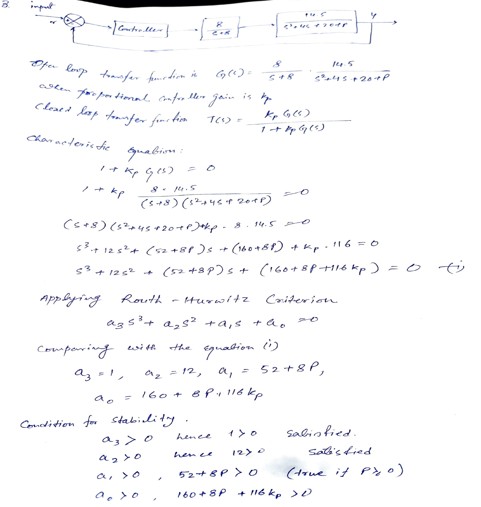 B. input
r
Controller
8
s+8
14.5
s²+4s+20+P
y
Open loop transfer function is G(s) = 8/(s+8) · 14.5/(s²+4s+20+P)
when proportional controller gain is Kp
Closed loop transfer function T(s) = Kp G(s)/(1 + Kp G(s))
Characteristic equation:
1 + Kp G(s) = 0
1 + Kp 8 · 14.5/((s+8)(s²+4s+20+P)) = 0
(s+8)(s²+4s+20+P)+Kp · 8 · 14.5 = 0
s³+12s² + (52+8P)s + (160+8P) + Kp · 116 = 0
s³ + 12s² + (52+8P)s + (160+8P+116Kp) = 0 —(i)
Applying Routh - Hurwitz Criterion
a₃s³ + a₂s² + a₁s + a₀ = 0
Comparing with the equation (i)
a₃ = 1, a₂ = 12, a₁ = 52+8P,
a₀ = 160 + 8P + 116Kp
Condition for stability.
a₃ > 0 hence 1>0 satisfied.
a₂ > 0 hence 12>0 satisfied
a₁ > 0, 52+8P > 0 (true if P≥0)
a₀ > 0, 160+8P +116Kp > 0